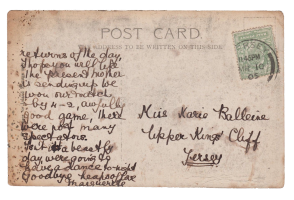 POST CARD
THE ADDRESS TO BE WRITTEN ON THIS SIDE
returns of the day,
I hope you will like
the present Mother
is sending up. We
won our match
by 4-2, awfully
good game, there
were not many
spectators.
Isn't it a beastly
day were going to
have a dance to-night
Goodbye heaps of love
Marguerite
JERSEY
11.45PM
05
Miss Marie Balleine
Upper Kings Cliff
Jersey